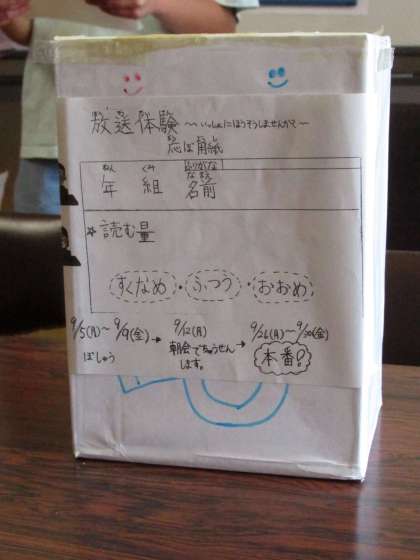 放送体験 〜いっしょにほうそうしませんか?〜
応ぼ用紙
ねん くみ ふりがな
なまえ
年 組 名前
☆読む量
すくなめ・ふつう・おおめ
9/5(月)〜9/9(金) → 9/12(月) → 9/26(月)〜9/30(金)
ぼしゅう 朝会でちゅうせんします。 本番!